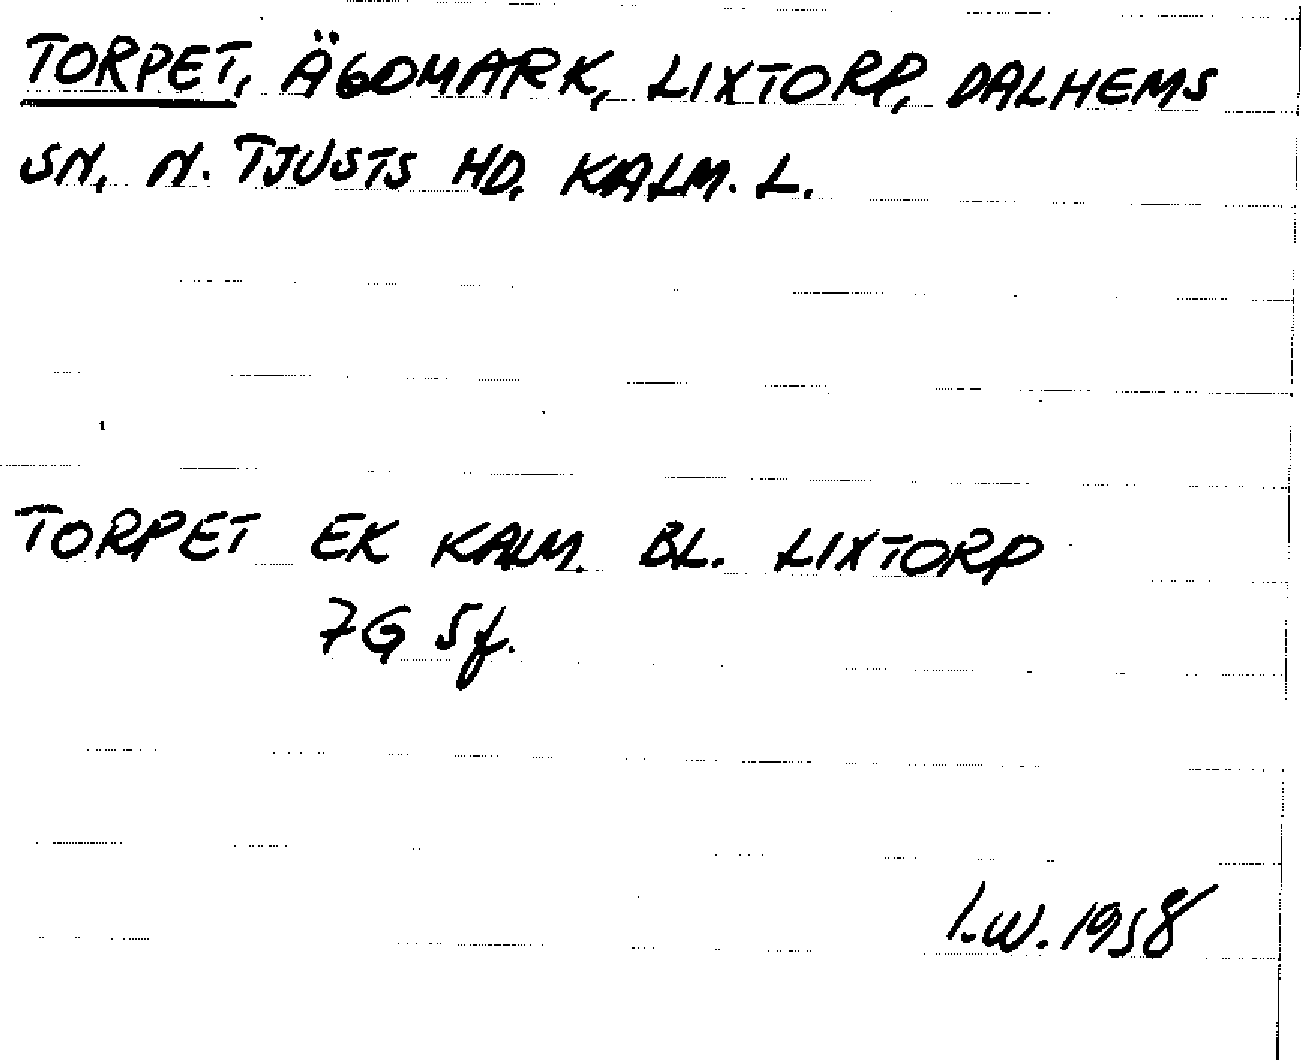 TORPET, ÄGOMARK, LIXTORP, DALHEMS
SN, N. TJUSTS HD, KALM. L.
TORPET EK KALM. BL. LIXTORP
7G 5f.
I.W. 1958